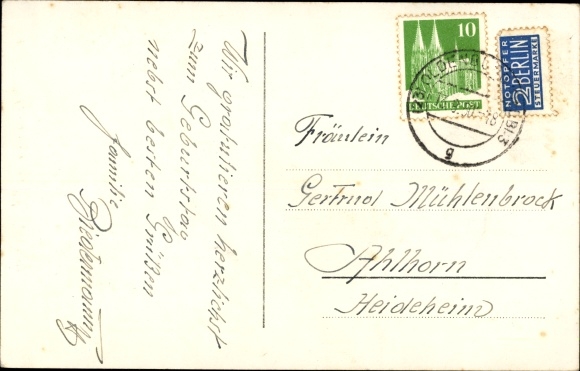 Wir gratulieren herzlichst
zum Geburtstag
nebst besten Grüßen
Familie
10
DEUTSCHE POST
NOTOPFER
2 BERLIN
STEUERMARKE
Fräulein
Gertrud Mühlenbrock
Ahlhorn
Heideheim